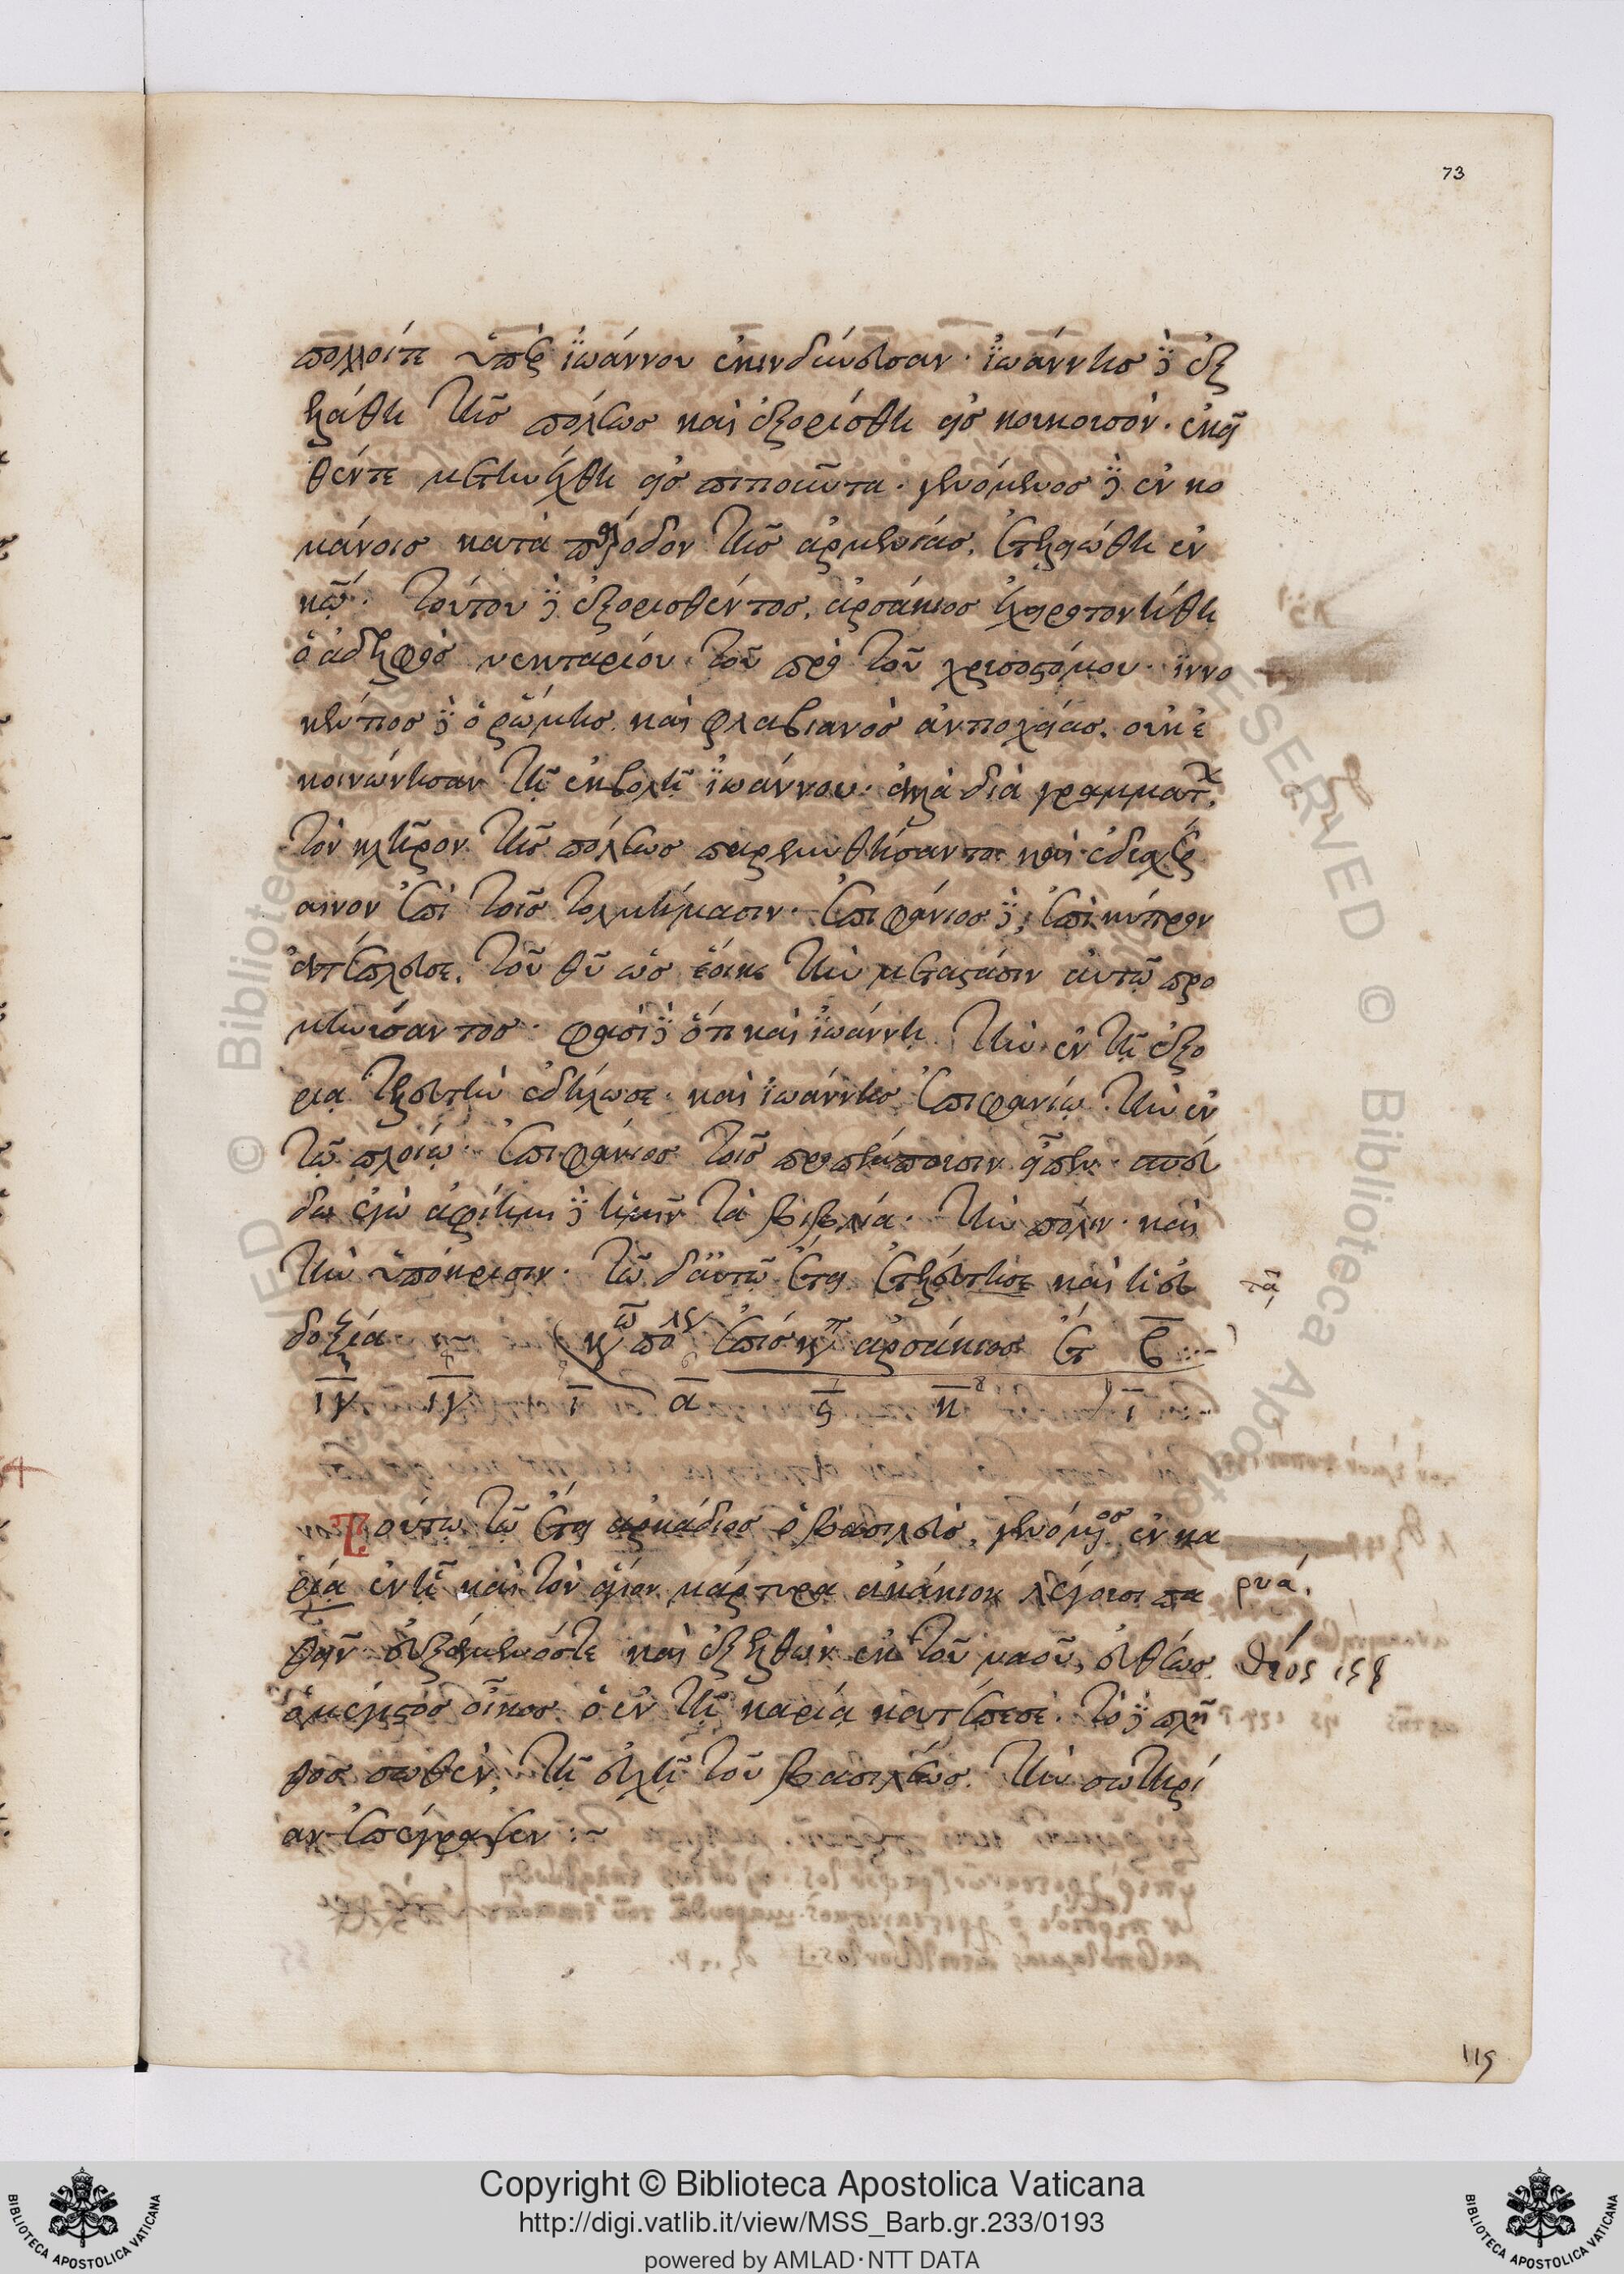 73
πολλοί τε ὑπὲρ ἰωάννου ἐκινδύνευσαν · ἰωάννης δὲ ἐξ
ηλάθη τῆς πόλεως καὶ ἐξορίσθη εἰς κουκουσόν · ἐκεῖ
θέν τε μετηνέχθη εἰς πιτιοῦντα · γενόμενος δὲ ἐν κο
μάνοις κατὰ πάροδον τῆς ἀρμενίας, ἐτελειώθη ἐν
κῶ. τούτου δὲ ἐξορισθέντος, ἀρσάκιος ἐχειροτονήθη
ὁ ἀδελφὸς νεκταρίου τοῦ πρὸ τοῦ χρυσοστόμου · ἰννο
κέντιος δὲ ὁ ῥώμης καὶ φλαβιανὸς ἀντιοχείας, οὐκ ἐ
κοινώνησαν τῇ ἐκβολῇ ἰωάννου · ἀλλὰ διὰ γραμμάτων
τὸν κλῆρον τῆς πόλεως παρεμυθήσαντο καὶ ἐδυσχέρ
αινον ἐπὶ τοῖς τολμήμασιν · ἐπιφάνιος δὲ, ἐπὶ κύπρον
ἀπέπλευσε, τοῦ θῦ ὡς ἔοικε τὴν μετάστασιν αὐτῶ προ
μηνύσαντος · φασὶ δὲ ὅτι καὶ ἰωάννη τὴν ἐν τῇ ἐξο
ρία τελευτὴν ἐδήλωσε · καὶ ἰωάννης ἐπιφανίω τὴν ἐν
τῶ πλοίω · ἐπιφάνιος τοῖς προπέμπουσιν εἶπεν · σπεύ
δω ἐγὼ ἀφίημι δὲ ὑμῖν τὰ βασίλεια · τὴν πόλιν · καὶ
τὴν ὑπόκρισιν · τῶ δ' αὐτῶ ἔτει ἐτελεύτησε καὶ ἡ εὐ
δοξία
κῶ πολ ἐπίσκπ ἀρσάκιος ἔτ β
ιγ ιγ ι α ς κ ι
Τούτω τῶ ἔτει ἀρκάδιος ὁ βασιλεὺς, γενόμενος ἐν κα
ρύα ἐν ᾗ καὶ τὸν ἅγιον μάρτυρα ἀκάκιον λέγουσι πα
θεῖν εὐξάμενός τε καὶ ἐξελθὼν ἐκ τοῦ ναοῦ, εὐθέως
ὁ μέγιστος οἶκος ὁ ἐν τῇ καρύα κατέπεσε · τὸ δὲ πλῆ
θος σωθὲν, τῇ εὐχῇ τοῦ βασιλέως τὴν σωτηρί
αν ἐπέγραψεν
ρυα,
119
Copyright © Biblioteca Apostolica Vaticana
http://digi.vatlib.it/view/MSS_Barb.gr.233/0193
powered by AMLAD·NTT DATA
BIBLIOTECA APOSTOLICA VATICANA
BIBLIOTECA APOSTOLICA VATICANA